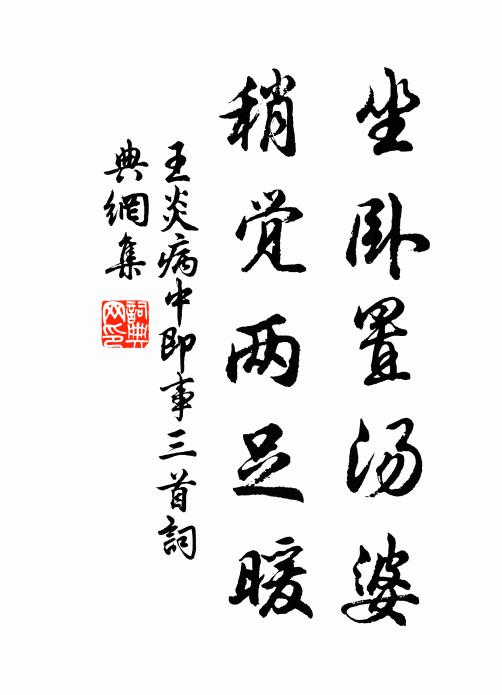 坐卧置汤婆
稍觉两足暖
王炎病中即事三首詞
典網集
詞典网印